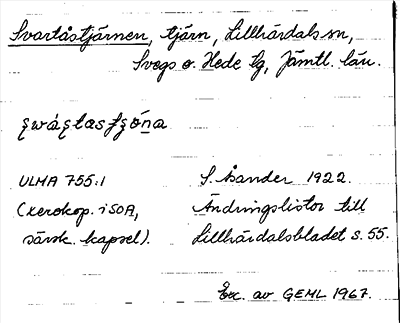 Svartåstjärnen, tjärn, Lillhärdals sn,
Svegs o. Hede tg, Jämtl. län.
ULMA 755:1
(xerokop. i SOA,
särsk. kapsel).
S. Åsander 1922.
Ändringslistor till
Lillhärdalsbladet s. 55.
Exc. av GEHL 1967.